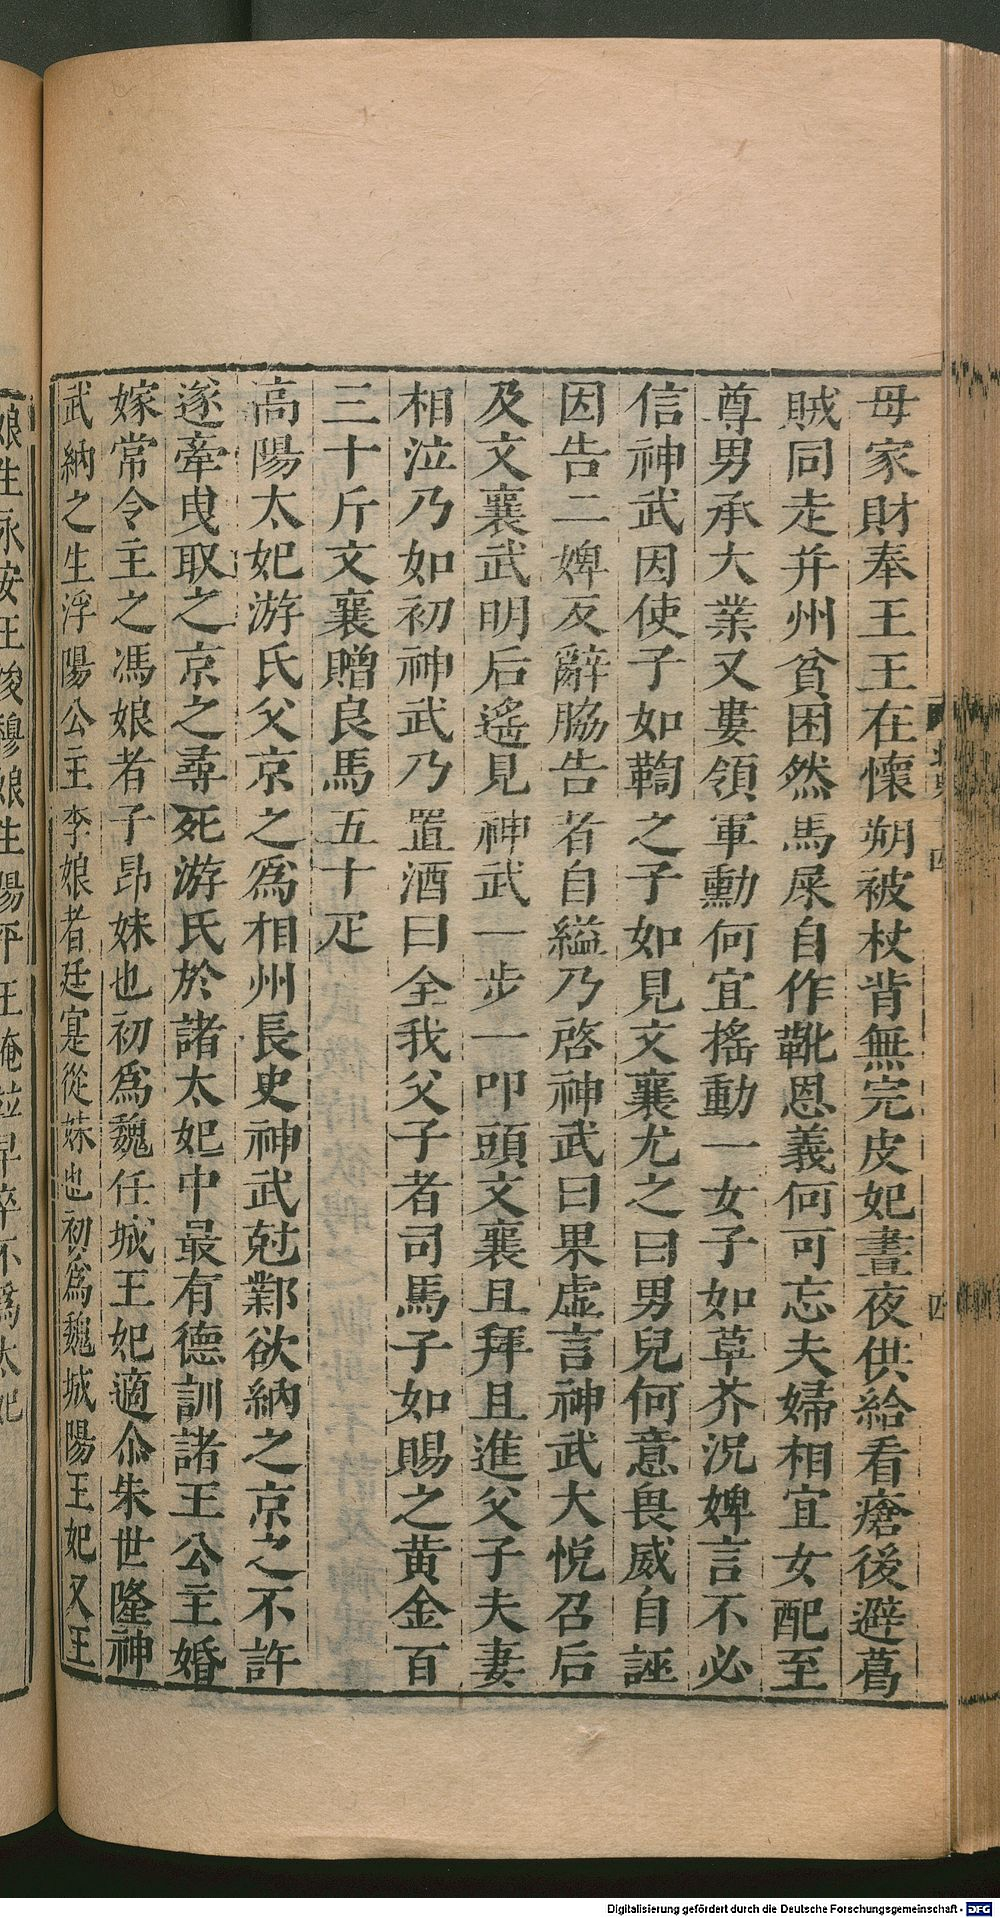 母家財奉王王在懷朔被杖背無完皮妃晝夜供給看瘡後避葛
賊同走并州貧困然馬屎自作靴恩義何可忘夫婦相宜女配至
尊男承大業又婁領軍勳何宜搖動一女子如草芥況婢言不必
信神武因使子如鞫之子如見文襄尤之曰男兒何意畏威自誣
因告二婢反辭脇告者自縊乃啓神武曰果虛言神武大悅召后
及文襄武明后遙見神武一步一叩頭文襄且拜且進父子夫妻
相泣乃如初神武乃置酒曰全我父子者司馬子如賜之黄金百
三十斤文襄贈良馬五十疋
高陽太妃游氏父京之爲相州長史神武尅鄴欲納之京之不許
遂牽曳取之京之尋死游氏於諸太妃中最有德訓諸王公主婚
嫁常令主之馮娘者子昂妹也初爲魏任城王妃適尒朱世隆神
武納之生浮陽公主李娘者廷寔從妹也初爲魏城陽王妃又王
娘生永安王浚穆娘生陽平王淹並早卒不爲太妃
北史 四
四
Digitalisierung gefördert durch die Deutsche Forschungsgemeinschaft - DFG